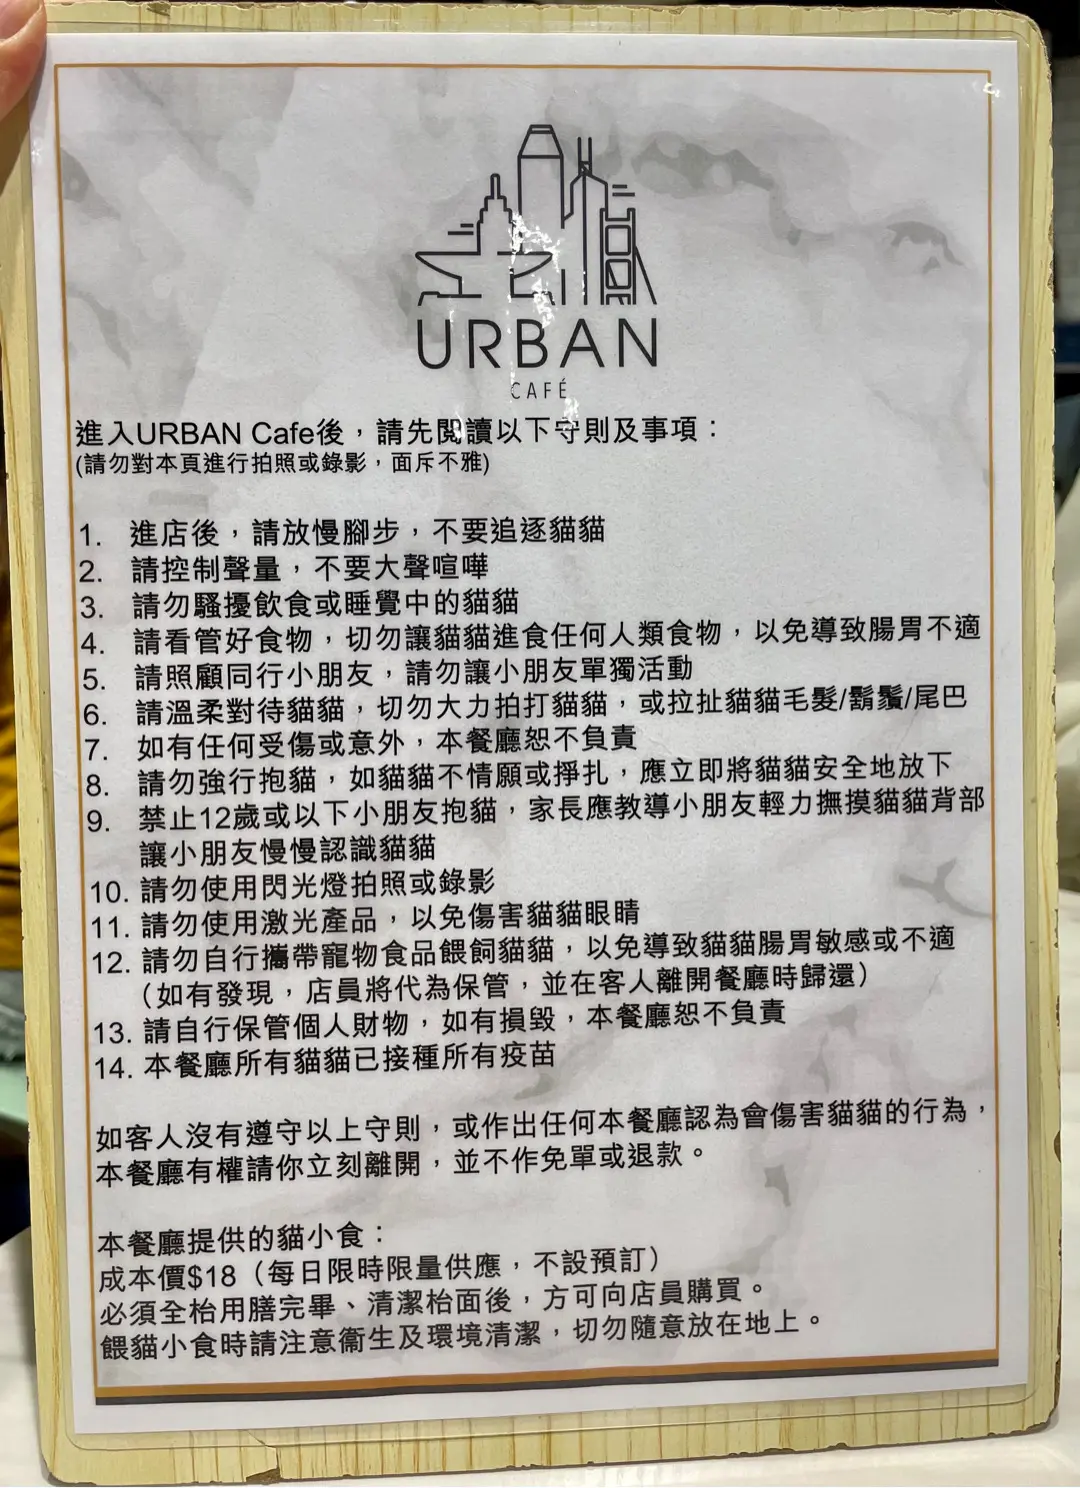 URBAN
CAFÉ
進入URBAN Cafe後，請先閱讀以下守則及事項：
(請勿對本頁進行拍照或錄影，面斥不雅)
1. 進店後，請放慢腳步，不要追逐貓貓
2. 請控制聲量，不要大聲喧嘩
3. 請勿騷擾飲食或睡覺中的貓貓
4. 請看管好食物，切勿讓貓貓進食任何人類食物，以免導致腸胃不適
5. 請照顧同行小朋友，請勿讓小朋友單獨活動
6. 請溫柔對待貓貓，切勿大力拍打貓貓，或拉扯貓貓毛髮/鬍鬚/尾巴
7. 如有任何受傷或意外，本餐廳恕不負責
8. 請勿強行抱貓，如貓貓不情願或掙扎，應立即將貓貓安全地放下
9. 禁止12歲或以下小朋友抱貓，家長應教導小朋友輕力撫摸貓貓背部
讓小朋友慢慢認識貓貓
10. 請勿使用閃光燈拍照或錄影
11. 請勿使用激光產品，以免傷害貓貓眼睛
12. 請勿自行攜帶寵物食品餵飼貓貓，以免導致貓貓腸胃敏感或不適
（如有發現，店員將代為保管，並在客人離開餐廳時歸還）
13. 請自行保管個人財物，如有損毀，本餐廳恕不負責
14. 本餐廳所有貓貓已接種所有疫苗
如客人沒有遵守以上守則，或作出任何本餐廳認為會傷害貓貓的行為，
本餐廳有權請你立刻離開，並不作免單或退款。
本餐廳提供的貓小食：
成本價$18（每日限時限量供應，不設預訂）
必須全枱用膳完畢、清潔枱面後，方可向店員購買。
餵貓小食時請注意衞生及環境清潔，切勿隨意放在地上。